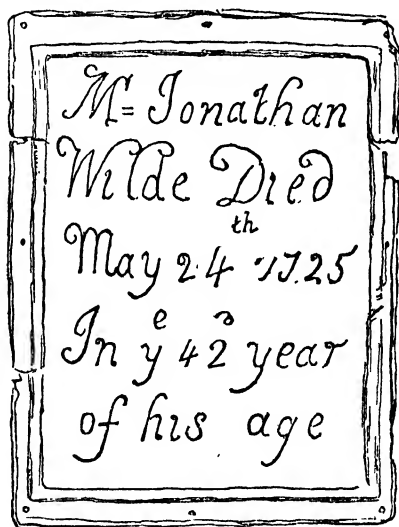 M= Jonathan
Wilde Died
May 24th 1725
In ye 42 year
of his age